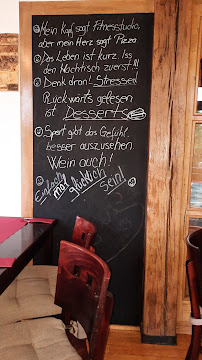 Mein Kopf sagt Fitnessstudio,
aber mein Herz sagt Pizza.
Das Leben ist kurz. Iss
den Nachtisch zuerst!!!
Denk dran! Stressed
Rückwärts gelesen
ist Desserts
Sport gibt das Gefühl,
besser auszusehen.
Wein auch!
Einfach
mal glücklich
sein!